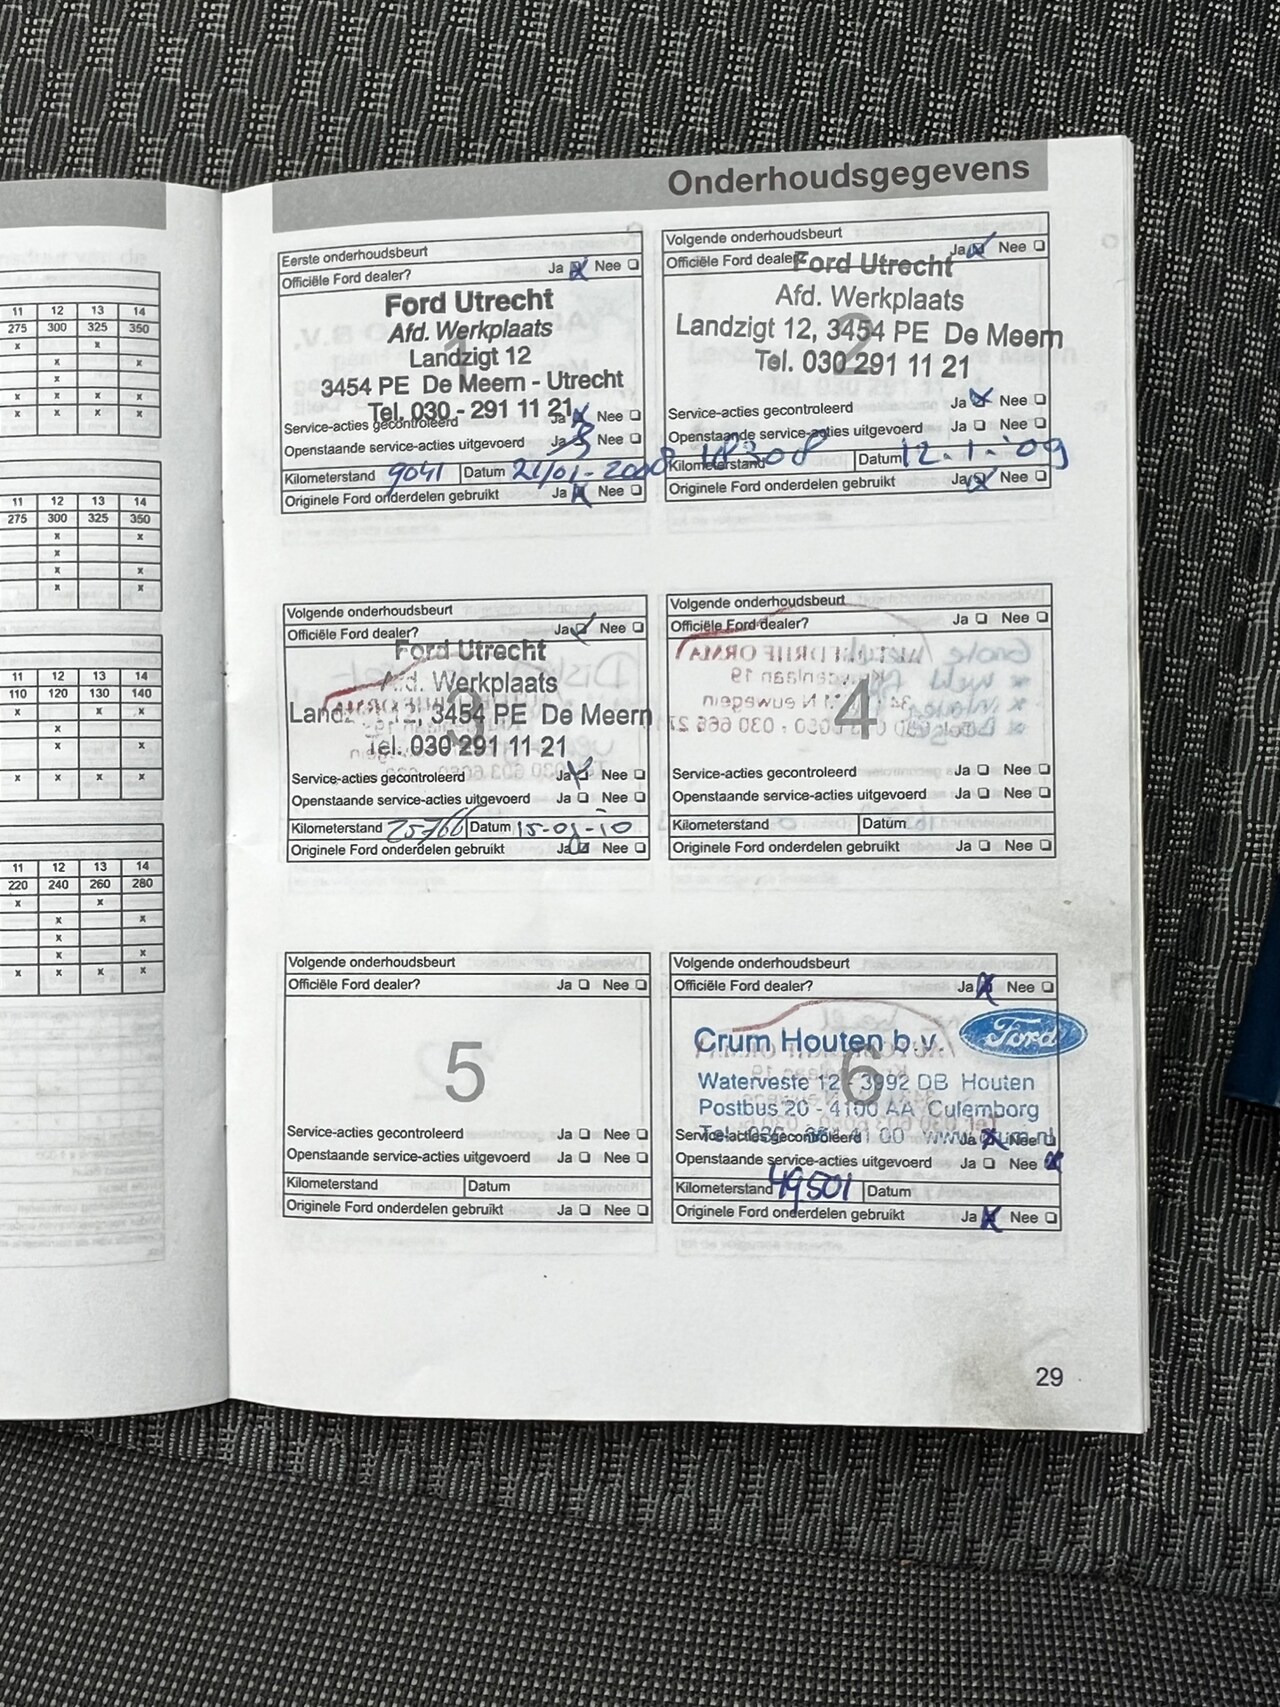 Onderhoudsgegevens
11 12 13 14
275 300 325 350
x x
x x
x
x x x x
x x x x
11 12 13 14
275 300 325 350
x x
x
x x
x x
11 12 13 14
110 120 130 140
x x x
x
x x
x x x x
11 12 13 14
220 240 260 280
x x
x x
x
x x
x x x x
Eerste onderhoudsbeurt
Officiële Ford dealer? Ja Nee
Ford Utrecht
Afd. Werkplaats
1
Landzigt 12
3454 PE De Meern - Utrecht
Tel. 030 - 291 11 21
Service-acties gecontroleerd Ja Nee
Openstaande service-acties uitgevoerd Ja Nee
Kilometerstand 9041 Datum 21/01-2008
Originele Ford onderdelen gebruikt Ja Nee
Volgende onderhoudsbeurt
Officiële Ford dealer? Ja Nee
Ford Utrecht
Afd. Werkplaats
2
Landzigt 12, 3454 PE De Meern
Tel. 030 291 11 21
Service-acties gecontroleerd Ja Nee
Openstaande service-acties uitgevoerd Ja Nee
Kilometerstand 18308 Datum 12-1-'09
Originele Ford onderdelen gebruikt Ja Nee
Volgende onderhoudsbeurt
Officiële Ford dealer? Ja Nee
Ford Utrecht
Afd. Werkplaats
3
Landzigt 12, 3454 PE De Meern
Tel. 030 291 11 21
Service-acties gecontroleerd Ja Nee
Openstaande service-acties uitgevoerd Ja Nee
Kilometerstand 25766 Datum
Originele Ford onderdelen gebruikt Ja Nee
Volgende onderhoudsbeurt
Officiële Ford dealer? Ja Nee
4
Service-acties gecontroleerd Ja Nee
Openstaande service-acties uitgevoerd Ja Nee
Kilometerstand Datum
Originele Ford onderdelen gebruikt Ja Nee
Volgende onderhoudsbeurt
Officiële Ford dealer? Ja Nee
5
Service-acties gecontroleerd Ja Nee
Openstaande service-acties uitgevoerd Ja Nee
Kilometerstand Datum
Originele Ford onderdelen gebruikt Ja Nee
Volgende onderhoudsbeurt
Officiële Ford dealer? Ja Nee
Crum Houten b.v. Ford
6
Waterveste 12 - 3992 DB Houten
Postbus 20 - 4100 AA Culemborg
Service-acties gecontroleerd Ja Nee
Openstaande service-acties uitgevoerd Ja Nee
Kilometerstand 49.501 Datum
Originele Ford onderdelen gebruikt Ja Nee
29